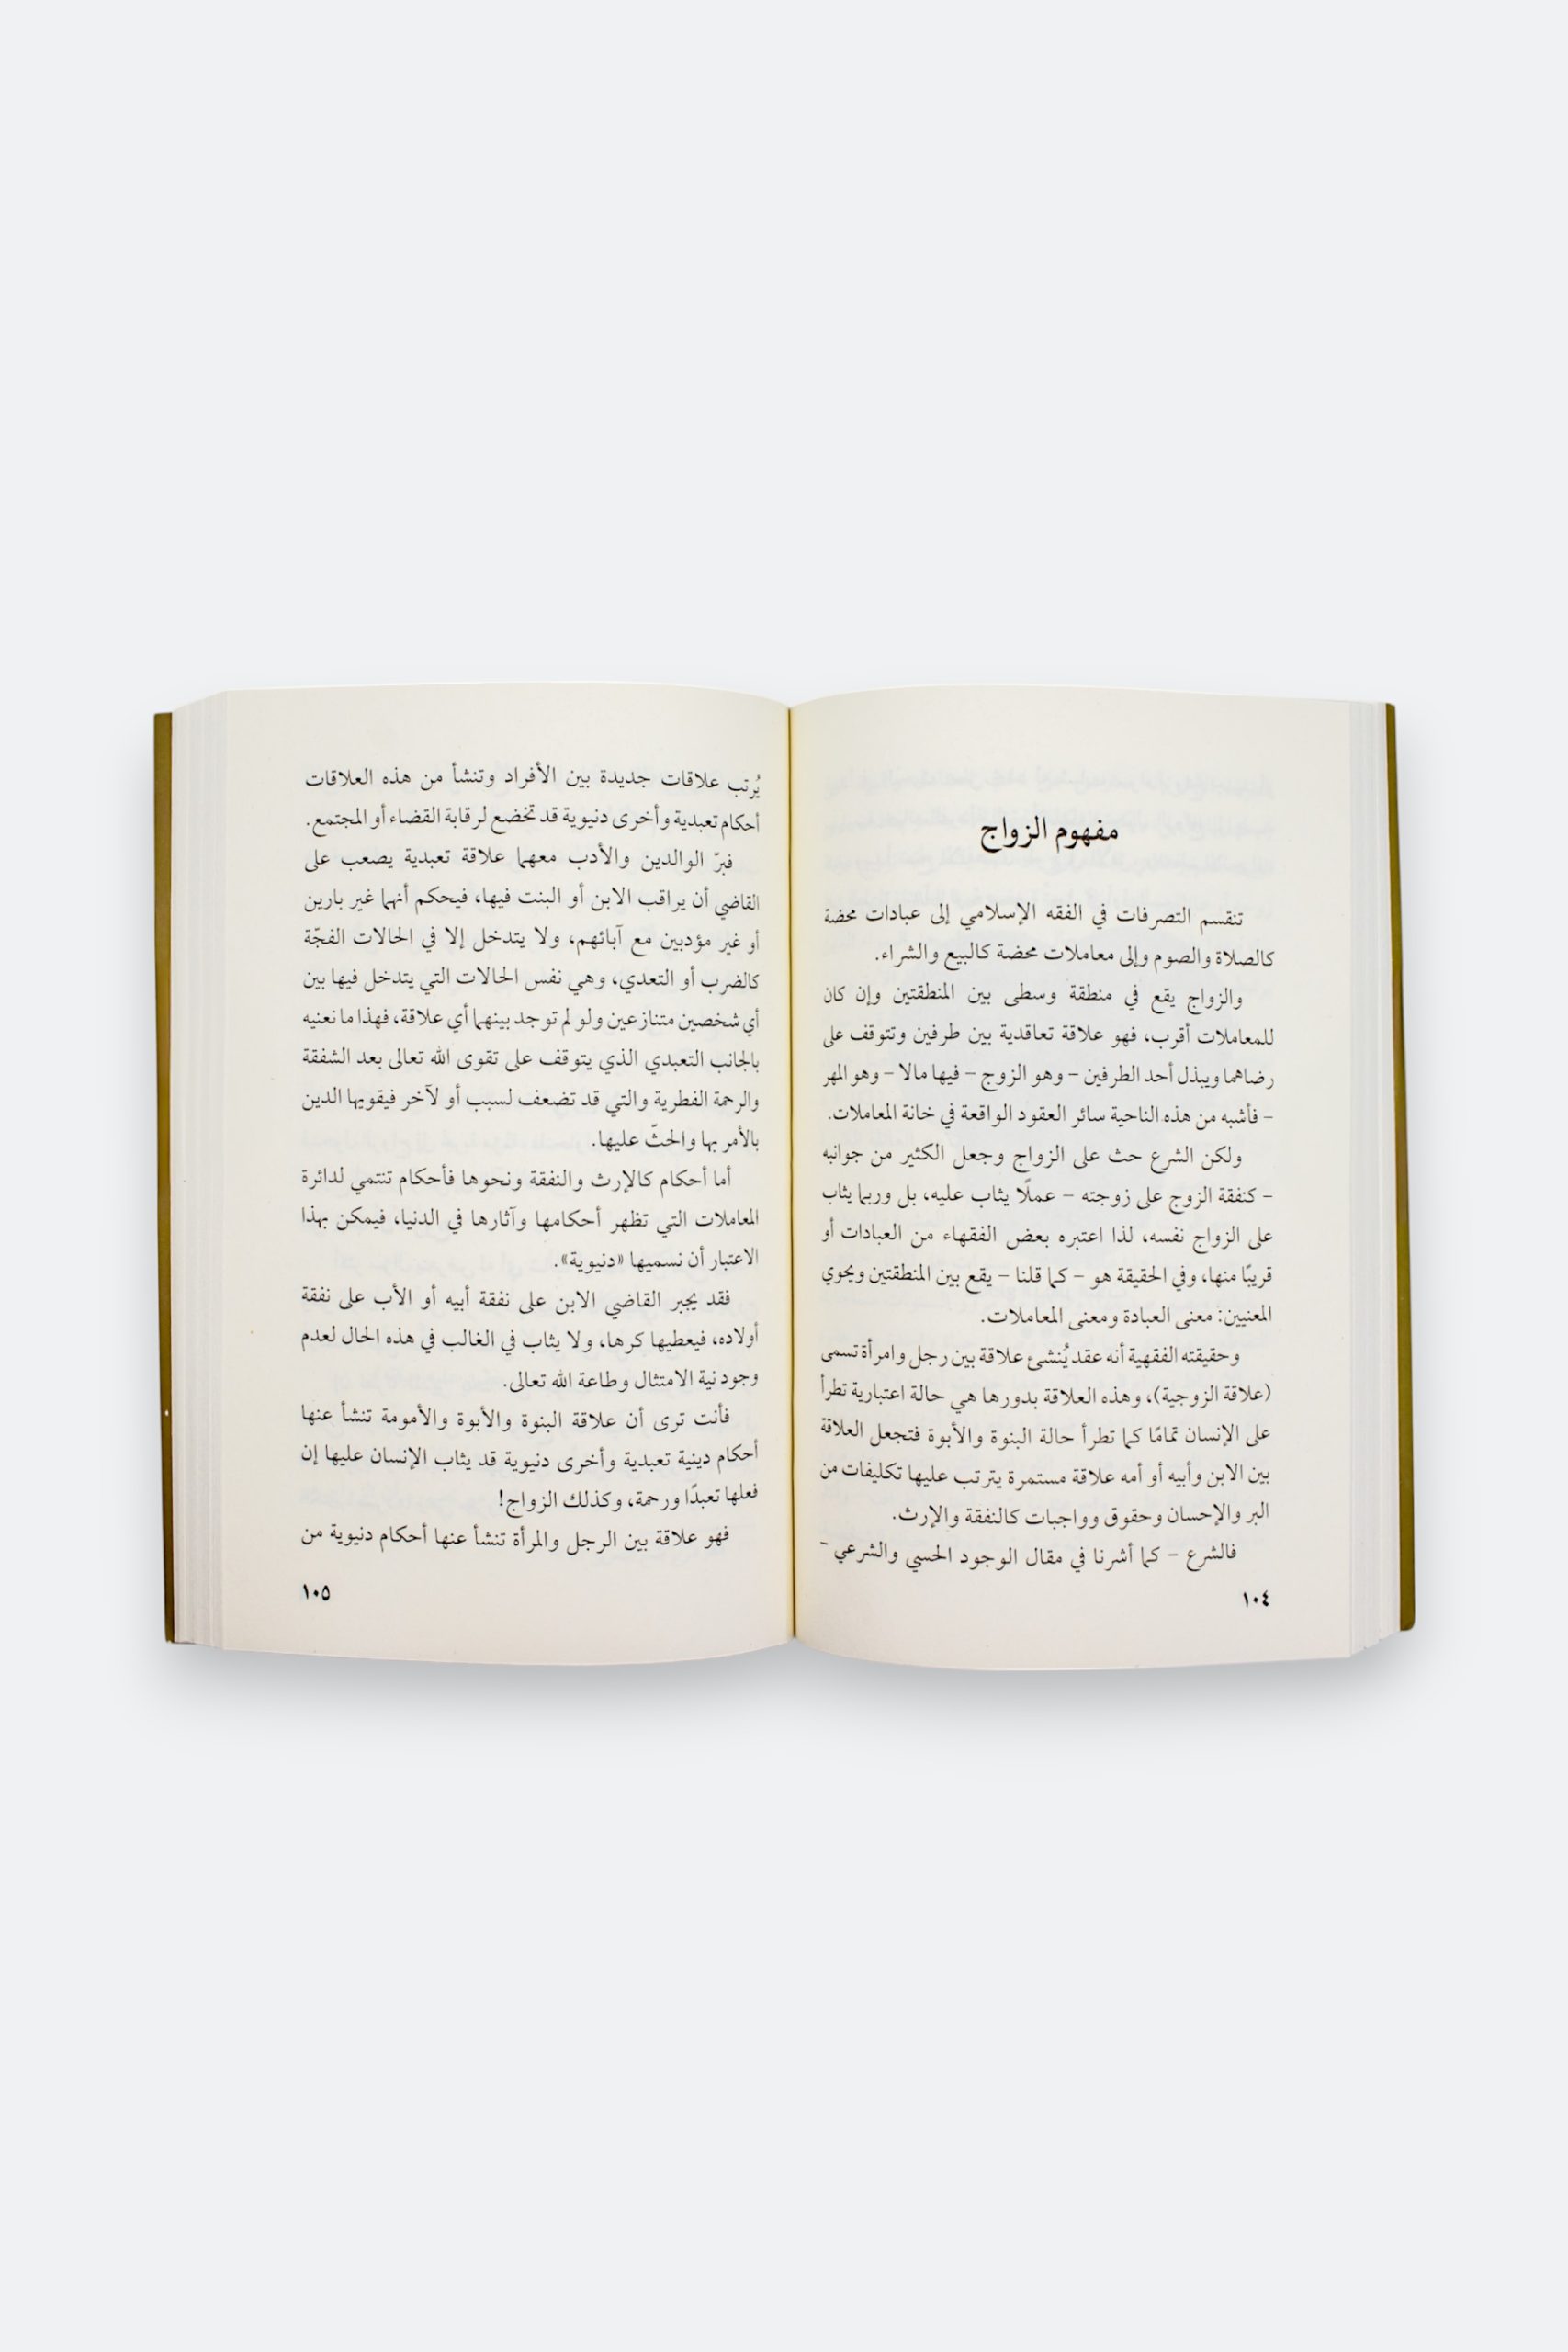 مفهوم الزواج
تنقسم التصرفات في الفقه الإسلامي إلى عبادات محضة
كالصلاة والصوم وإلى معاملات محضة كالبيع والشراء.
والزواج يقع في منطقة وسطى بين المنطقتين وإن كان
للمعاملات أقرب، فهو علاقة تعاقدية بين طرفين وتتوقف على
رضاهما ويبذل أحد الطرفين – وهو الزوج – فيها مالا – وهو المهر
– فأشبه من هذه الناحية سائر العقود الواقعة في خانة المعاملات.
ولكن الشرع حث على الزواج وجعل الكثير من جوانبه
– كنفقة الزوج على زوجته – عملًا يثاب عليه، بل وربما يثاب
على الزواج نفسه، لذا اعتبره بعض الفقهاء من العبادات أو
قريبًا منها، وفي الحقيقة هو – كما قلنا – يقع بين المنطقتين ويحوي
المعنيين: معنى العبادة ومعنى المعاملات.
وحقيقته الفقهية أنه عقد يُنشئ علاقة بين رجل وامرأة تسمى
(علاقة الزوجية)، وهذه العلاقة بدورها هي حالة اعتبارية تطرأ
على الإنسان تمامًا كما تطرأ حالة البنوة والأبوة فتجعل العلاقة
بين الابن وأبيه أو أمه علاقة مستمرة يترتب عليها تكليفات من
البر والإحسان وحقوق وواجبات كالنفقة والإرث.
فالشرع – كما أشرنا في مقال الوجود الحسي والشرعي –
١٠٤
يُرتب علاقات جديدة بين الأفراد وتنشأ من هذه العلاقات
أحكام تعبدية وأخرى دنيوية قد تخضع لرقابة القضاء أو المجتمع.
فبرّ الوالدين والأدب معهما علاقة تعبدية يصعب على
القاضي أن يراقب الابن أو البنت فيها، فيحكم أنهما غير بارين
أو غير مؤدبين مع آبائهم، ولا يتدخل إلا في الحالات الفجّة
كالضرب أو التعدي، وهي نفس الحالات التي يتدخل فيها بين
أي شخصين متنازعين ولو لم توجد بينهما أي علاقة، فهذا ما نعنيه
بالجانب التعبدي الذي يتوقف على تقوى الله تعالى بعد الشفقة
والرحمة الفطرية والتي قد تضعف لسبب أو لآخر فيقويها الدين
بالأمر بها والحثّ عليها.
أما أحكام كالإرث والنفقة ونحوها فأحكام تنتمي لدائرة
المعاملات التي تظهر أحكامها وآثارها في الدنيا، فيمكن بهذا
الاعتبار أن نسميها «دنيوية».
فقد يجبر القاضي الابن على نفقة أبيه أو الأب على نفقة
أولاده، فيعطيها كرها، ولا يثاب في الغالب في هذه الحال لعدم
وجود نية الامتثال وطاعة الله تعالى.
فأنت ترى أن علاقة البنوة والأبوة والأمومة تنشأ عنها
أحكام دينية تعبدية وأخرى دنيوية قد يثاب الإنسان عليها إن
فعلها تعبدًا ورحمة، وكذلك الزواج!
فهو علاقة بين الرجل والمرأة تنشأ عنها أحكام دنيوية من
١٠٥